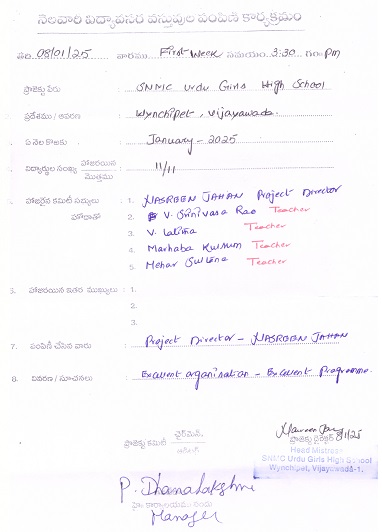 నెలవారి విద్యావసర వస్తువుల పంపిణి కార్యక్రమం
తేది 08/01/25 వారము First Week సమయం 3:30 గం॥ pm
ప్రాజెక్టు పేరు : SNMC Urdu Girls High School
ప్రదేశము / : Wynchipet, Vijayawada.
ఏ నెల కొరకు : January - 2025
విద్యార్థుల సంఖ్య హాజరయిన / మొత్తము : 11/11
హాజరైన కమిటీ సభ్యులు : 1. NASREEN JAHAN Project Director
హోదాతో 2. V. Srinivasa Rao Teacher
3. V. Lalitha Teacher
4. Marhaba Kulsum Teacher
5. Mehar Sultana Teacher
6. హాజరయిన ఇతర ముఖ్యులు : 1.
2.
3.
7. పంపిణి చేసిన వారు : Project Director - NASREEN JAHAN
8. వివరణ / సూచనలు : Excellent organination - Excellent Programme.
ప్రాజెక్టు కమిటీ ఛైర్మన్,
ప్రాజెక్టు డైరెక్టర్ 8/1/25
Head Mistress
SNMC Urdu Girls High School
Wynchipet, Vijayawada-1.
P. Dhanalakshmi
Manager